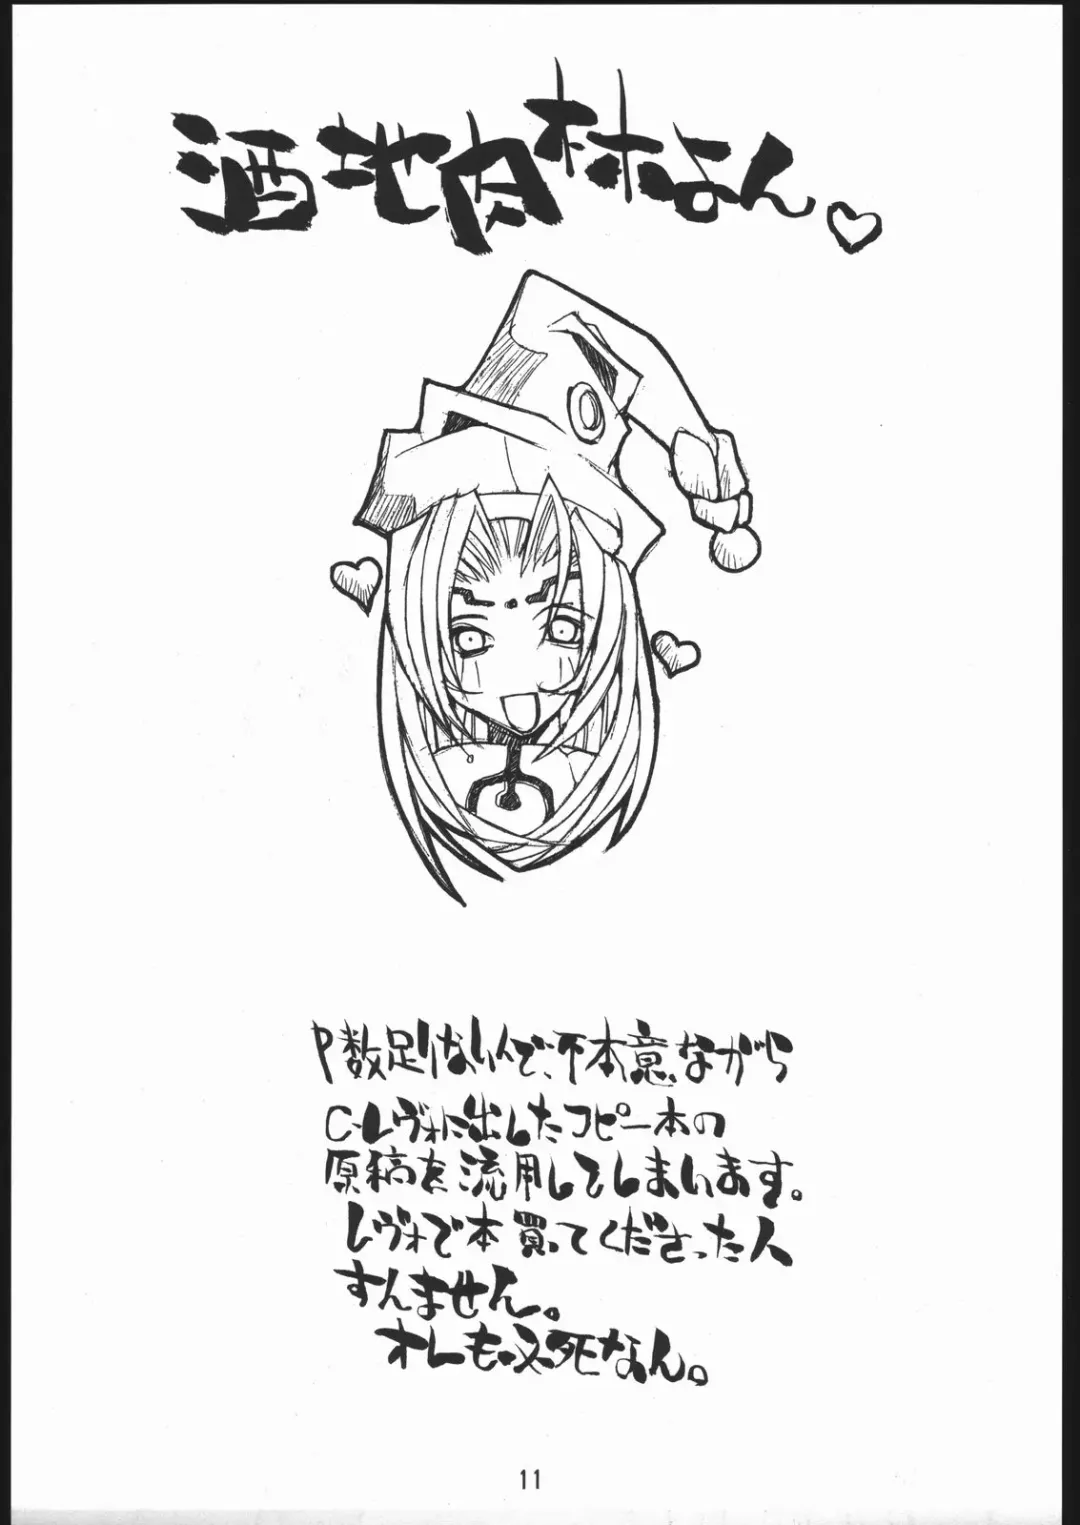 酒地肉林なん♡
P数足りないんで、不本意ながら
C-レヴォに出したコピー本の
原稿を流用してしまいます。
レヴォで本買ってくださった人
すんません。
オレも必死なん。
11